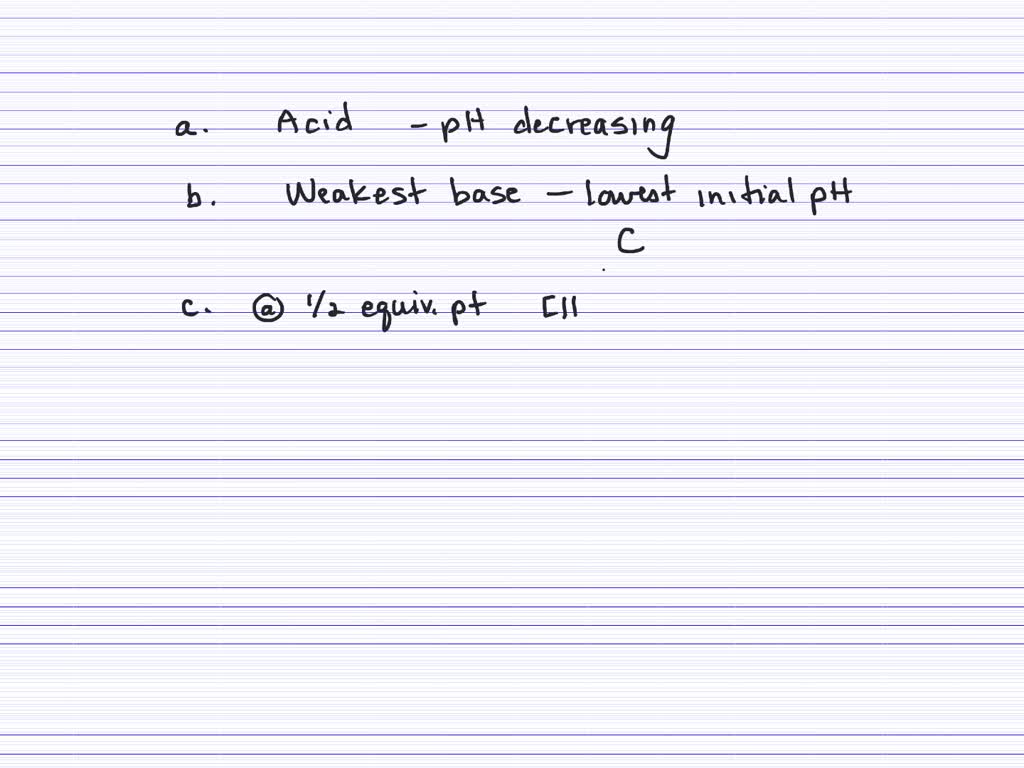 a. Acid - pH decreasing
b. Weakest base - lowest initial pH
C
c. @ 1/2 equiv. pt